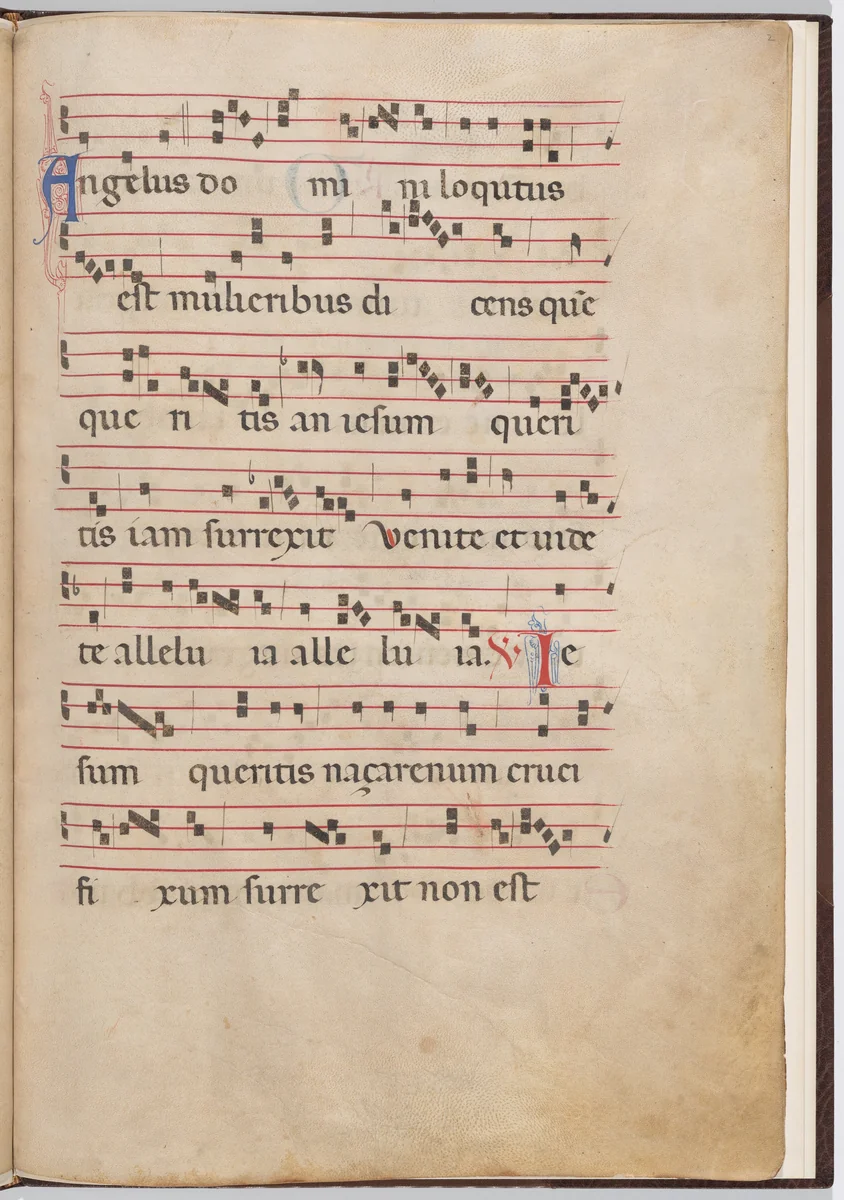 2
Angelus do mi ni loqutus
est mulieribus di cens que̅
que ri tis an iesum queri
tis iam surrexit Venite et uide
te allelu ia alle lu ia. V Ie
sum queritis naçarenum cruci
fi xum surre xit non est